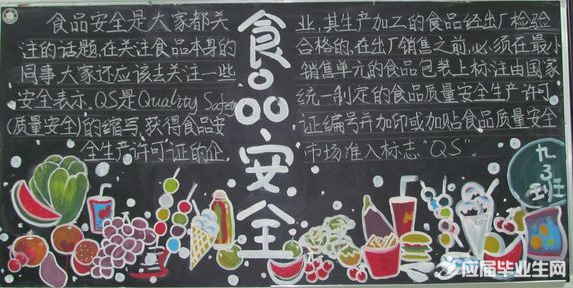 食品安全是大家都关
注的话题,在关注食品本身的
同事,大家还应该去关注一些
安全表示.QS是Quality Safety
(质量安全)的缩写,获得食品安
全生产许可证的企.
食品安全
业,其生产加工的食品经出厂检验
合格的,在出厂销售之前,必须在最小
销售单元的食品包装上标注由国家
统一制定的食品质量安全生产许可
证编号并加印或加贴食品质量安全
市场准入标志"QS".
九3班
应届毕业生网